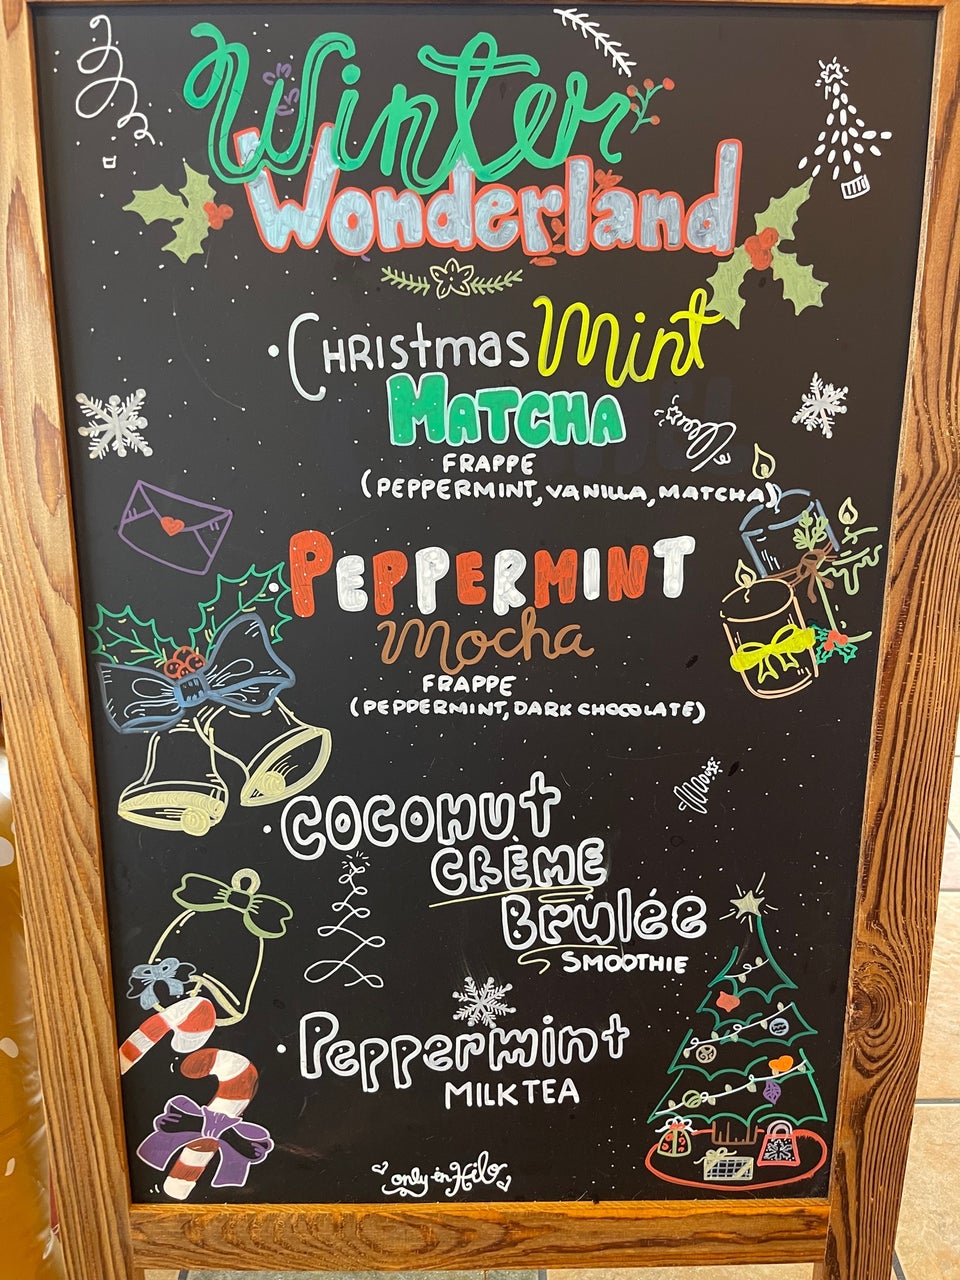 Winter
Wonderland
• Christmas Mint
Matcha
FRAPPE
(PEPPERMINT, VANILLA, MATCHA)
• PEPPERMINT
Mocha
FRAPPE
(PEPPERMINT, DARK CHOCOLATE)
• COCONUT
CRÈME
Brûlée
SMOOTHIE
• Peppermint
MILK TEA
only in Hilo